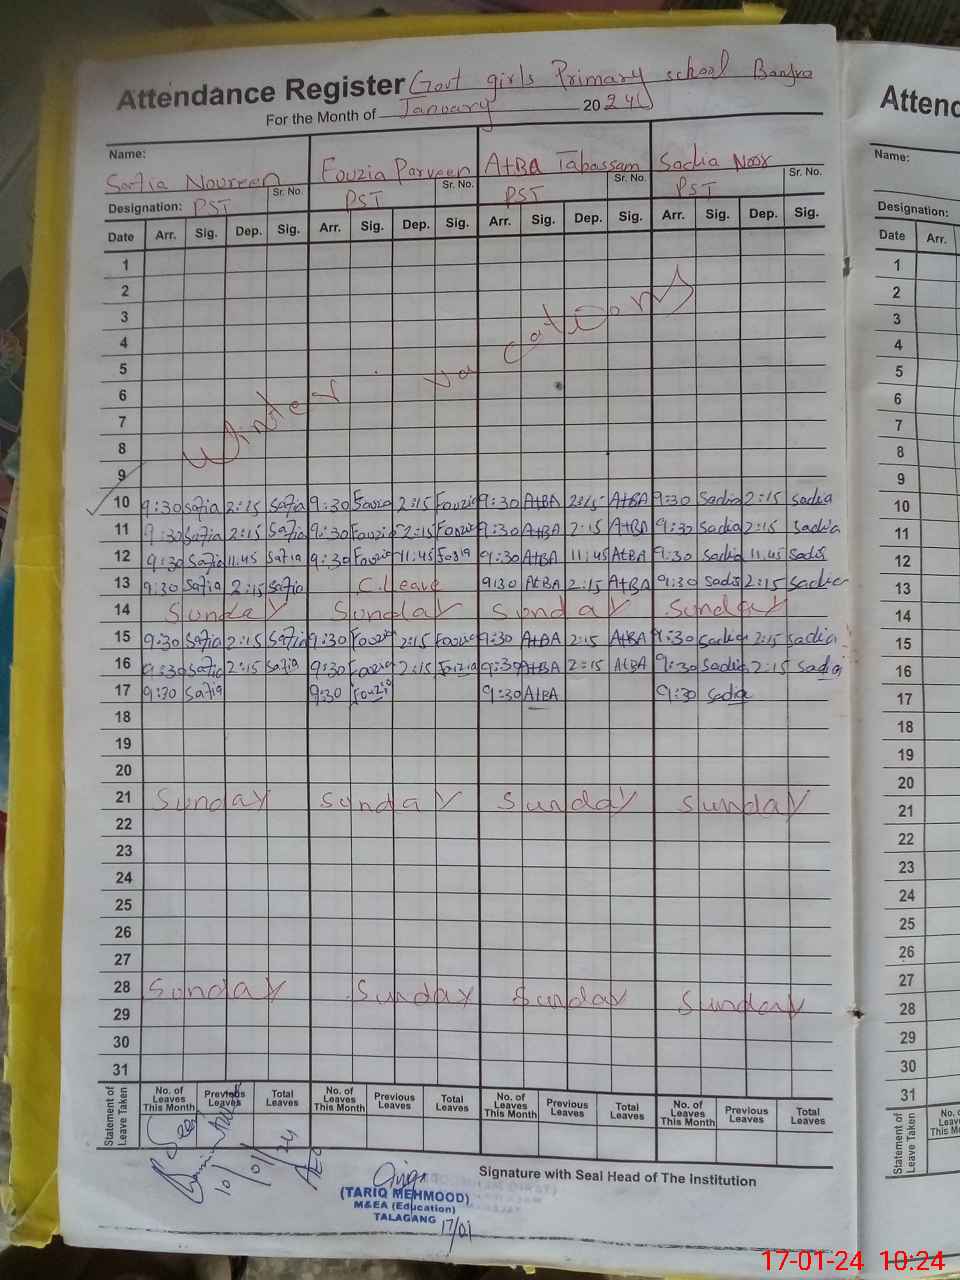 Attendance Register Govt girls Primary school
For the Month of January 2024
Name: Safia Noureen Fouzia Parveen AtBA Tabassam Sadia Noor
Sr. No. Sr. No. Sr. No. Sr. No.
Designation: PST PST PST PST
Date Arr. Sig. Dep. Sig. Arr. Sig. Dep. Sig. Arr. Sig. Dep. Sig. Arr. Sig. Dep. Sig.
1
2
3
4
5
6
7
8
9
Winter vacations
10 9:30 Safia 2:15 Safia 9:30 Fouzia 2:15 Fouzia 9:30 AtBA 2:15 AtBA 9:30 Sadia 2:15 Sadia
11 9:30 Safia 2:15 Safia 9:30 Fouzia 2:15 Fouzia 9:30 AtBA 2:15 AtBA 9:30 Sadia 2:15 Sadia
12 9:30 Safia 11:45 Safia 9:30 Fouzia 11:45 9:30 AtBA 11:45 AtBA 9:30 Sadia 11:45
13 9:30 Safia 2:15 Safia C.leave 9:30 AtBA 2:15 AtBA 9:30 2:15 Sadia
14 Sunday Sunday Sunday Sunday
15 9:30 Safia 2:15 Safia 9:30 Fouzia 2:15 Fouzia 9:30 AtBA 2:15 AtBA 9:30 Sadia 2:15 Sadia
16 9:30 Safia 2:15 Safia 9:30 Fouzia 2:15 Fouzia 9:30 AtBA 2:15 AtBA 9:30 Sadia 2:15 Sadia
17 9:30 Safia 9:30 Fouzia 9:30 AtBA 9:30 Sadia
18
19
20
21 Sunday Sunday Sunday Sunday
22
23
24
25
26
27
28 Sunday Sunday Sunday Sunday
29
30
31
Statement of Leave Taken
No. of Leaves This Month Previous Leaves Total Leaves No. of Leaves This Month Previous Leaves Total Leaves No. of Leaves This Month Previous Leaves Total Leaves No. of Leaves This Month Previous Leaves Total Leaves
10/01/24
AEO
Signature with Seal Head of The Institution
(TARIQ MEHMOOD)
M&EA (Education)
TALAGANG
17/01
Attend
Name:
Designation:
Date Arr.
1
2
3
4
5
6
7
8
9
10
11
12
13
14
15
16
17
18
19
20
21
22
23
24
25
26
27
28
29
30
31
Statement of Leave Taken
17-01-24 10:24